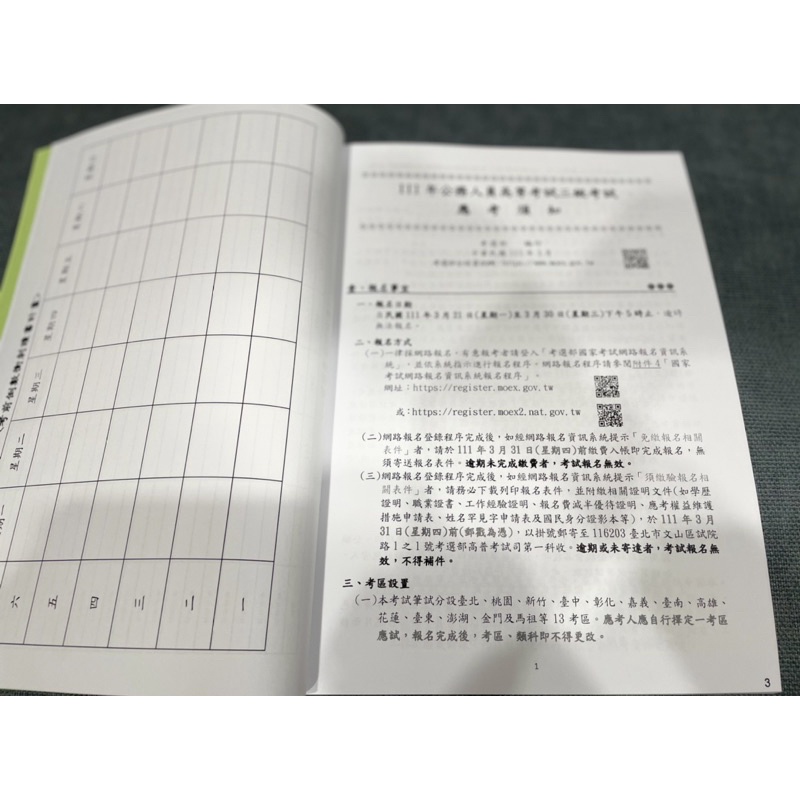 考前制敵衝刺讀書計畫
星期四
星期三
星期二
六
五
四
三
二
一
111 年公務人員高等考試三級考試
應 考 須 知
壹、報名事宜
一、報名日期
自民國 111 年 3 月 21 日(星期一)至 3 月 30 日(星期三)下午 5 時止，逾時
無法報名。
二、報名方式
(一)一律採網路報名，有意報考者請登入「考選部國家考試網路報名資訊系
統」，並依系統指示進行報名程序，網路報名程序請參閱附件 4「國家
考試網路報名資訊系統報名程序」。
網址：https://register.moex.gov.tw
或：https://register.moex2.nat.gov.tw
(二)網路報名登錄程序完成後，如經網路報名資訊系統提示「免繳報名相關
表件」者，請於 111 年 3 月 31 日(星期四)前繳費入帳即完成報名，無
須寄送報名表件。逾期未完成繳費者，考試報名無效。
(三)網路報名登錄程序完成後，如經網路報名資訊系統提示「須繳驗報名相
關表件」者，請務必下載列印報名表件，並附繳相關證明文件(如學歷
證明、職業證書、工作經驗證明、報名費減半優待證明、應考權益維護
措施申請表、姓名罕見字申請表及國民身分證影本等)，於 111 年 3 月
31 日(星期四)前(郵戳為憑)，以掛號郵寄至 116203 臺北市文山區試院
路 1 之 1 號考選部高普考試司第一科收。逾期或未寄達者，考試報名無
效，不得補件。
三、考區設置
(一)本考試筆試分設臺北、桃園、新竹、臺中、彰化、嘉義、臺南、高雄、
花蓮、臺東、澎湖、金門及馬祖等 13 考區。應考人應自行擇定一考區
應試，報名完成後，考區、類科即不得更改。
1
3